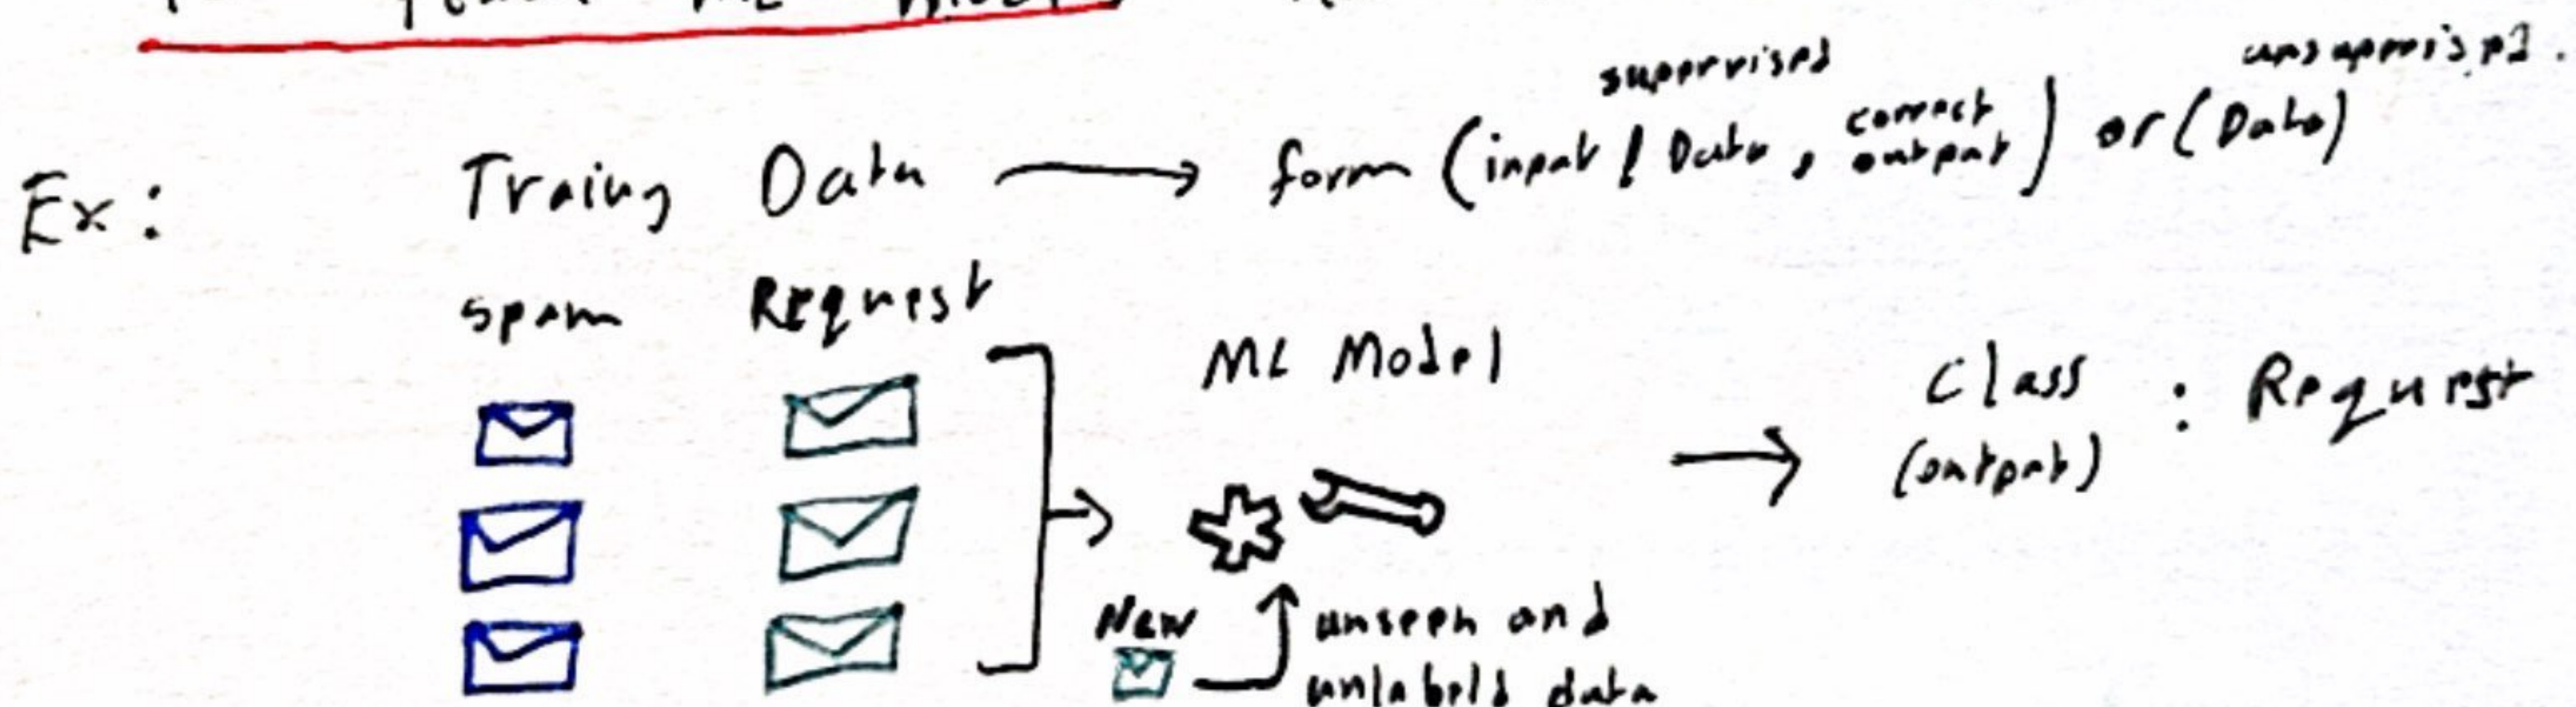 supervised unsupervised.
Ex: Traing Data → form (input / Data, correct output) or (Data)
Spam Request
ML Model
Class : Request
(output)
New
unseen and
unlabeld data